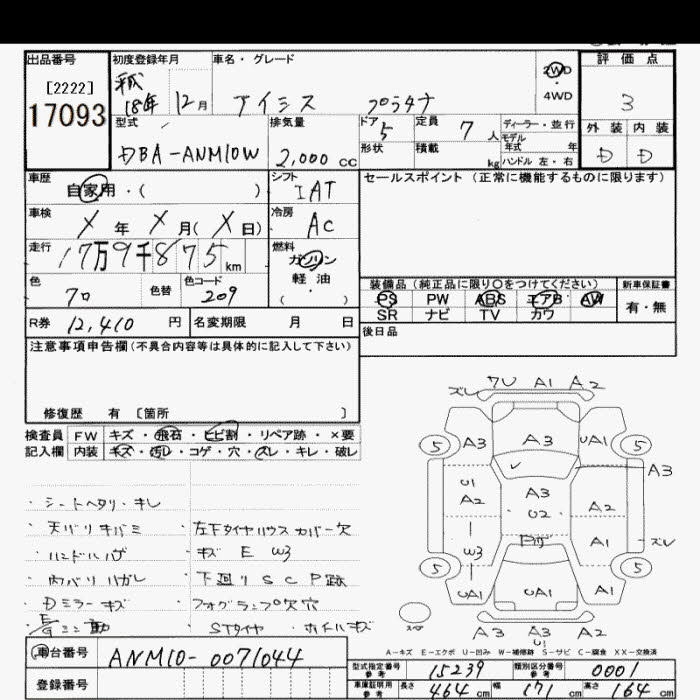 出品番号
[2222]
17093
初度登録年月
平成
18年 12月
車名・グレード
アイシス プラタナ
2WD
・
4WD
評価点
3
外装 内装
D D
型式
DBA-ANM10W
排気量
2,000 cc
ドア
5
定員
7人
ディーラー・並行
モデル
年式 年
形状
積載
kg
ハンドル 左・右
車歴
自家用・( )
シフト
IAT
セールスポイント (正常に機能するものに限ります)
車検
X年 X月(X日)
冷房
AC
走行
17万9千875km
燃料
ガソリン
・
軽油
( )
色
クロ
色替
色コード
209
装備品(純正品に限り○をつけてください)
新車保証書
PS PW ABS エアB AW
有・無
SR ナビ TV カワ
R券 12,410円
名変期限 月 日
後日品
注意事項申告欄(不具合内容等は具体的に記入して下さい)
修復歴 有 〔箇所 〕
検査員 FW キズ・飛石・ヒビ割・リペア跡・×要
記入欄 内装 キズ・汚レ・コゲ・穴・スレ・キレ・破レ
・シートヘタリ・キレ
・天バリキバミ
・左下タイヤハウスカバー欠
・ハンドルハゲ
・キズ E W3
・内バリハガレ
・下廻りSCP跡
・Dミラーキズ
・フォグランプ欠穴
STタイヤ ・ホイルキズ
ズレ 7U A1 A2
5 A3 A3 UA1 5
A3
U1
A2 A3 U2 A2
W3 A1 ズレ
5 5
UA1 UA1 A1
A3 A3 A2
U1
A-キズ E-エクボ U-凹み W-補修跡 S-サビ C-腐食 XX-交換済
車台番号
ANM10-0071044
登録番号
型式指定番号
参考
15239
類別区分番号
参考
0001
車庫証明用
参考
長さ 464 cm 幅 171 cm 高さ 164 cm